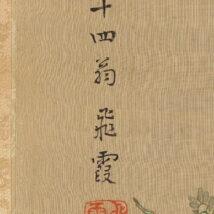 十四翁飛霞